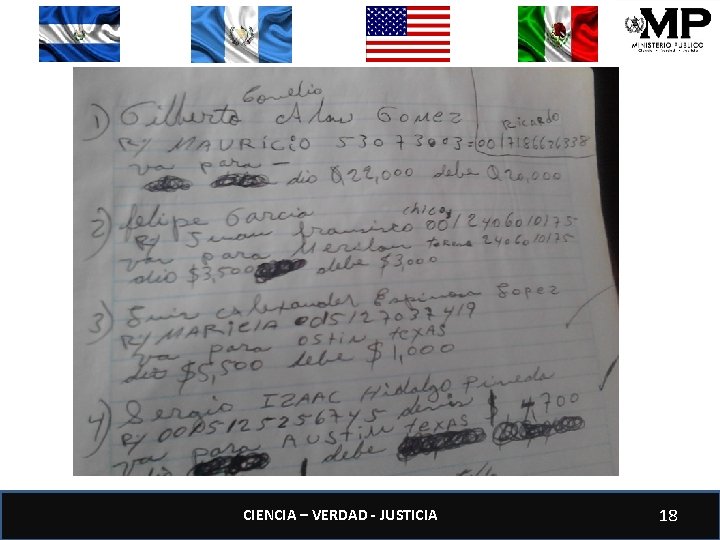 MP
MINISTERIO PÚBLICO
Gomelio
1) Gilberto Alan Gomez
Ricardo
R/ MAURICIO 53073003=0017186626338
va para —
dio Q22,000 debe Q20,000
2) felipe Garcia
chicas
R/ Juan francisco 0012406010175
va para Merelan
2406010175
dio $3,500 debe $3,000
3) Luis Alexander Espinosa Lopez
R/ MARICIA 0015127037419
va para ostin texas
dio $5,500 debe $1,000
4) Sergio IZAAC Hidalgo Pineda
R/ 0015125256745 $4,700
va para AUStin texas
debe
CIENCIA – VERDAD - JUSTICIA
18